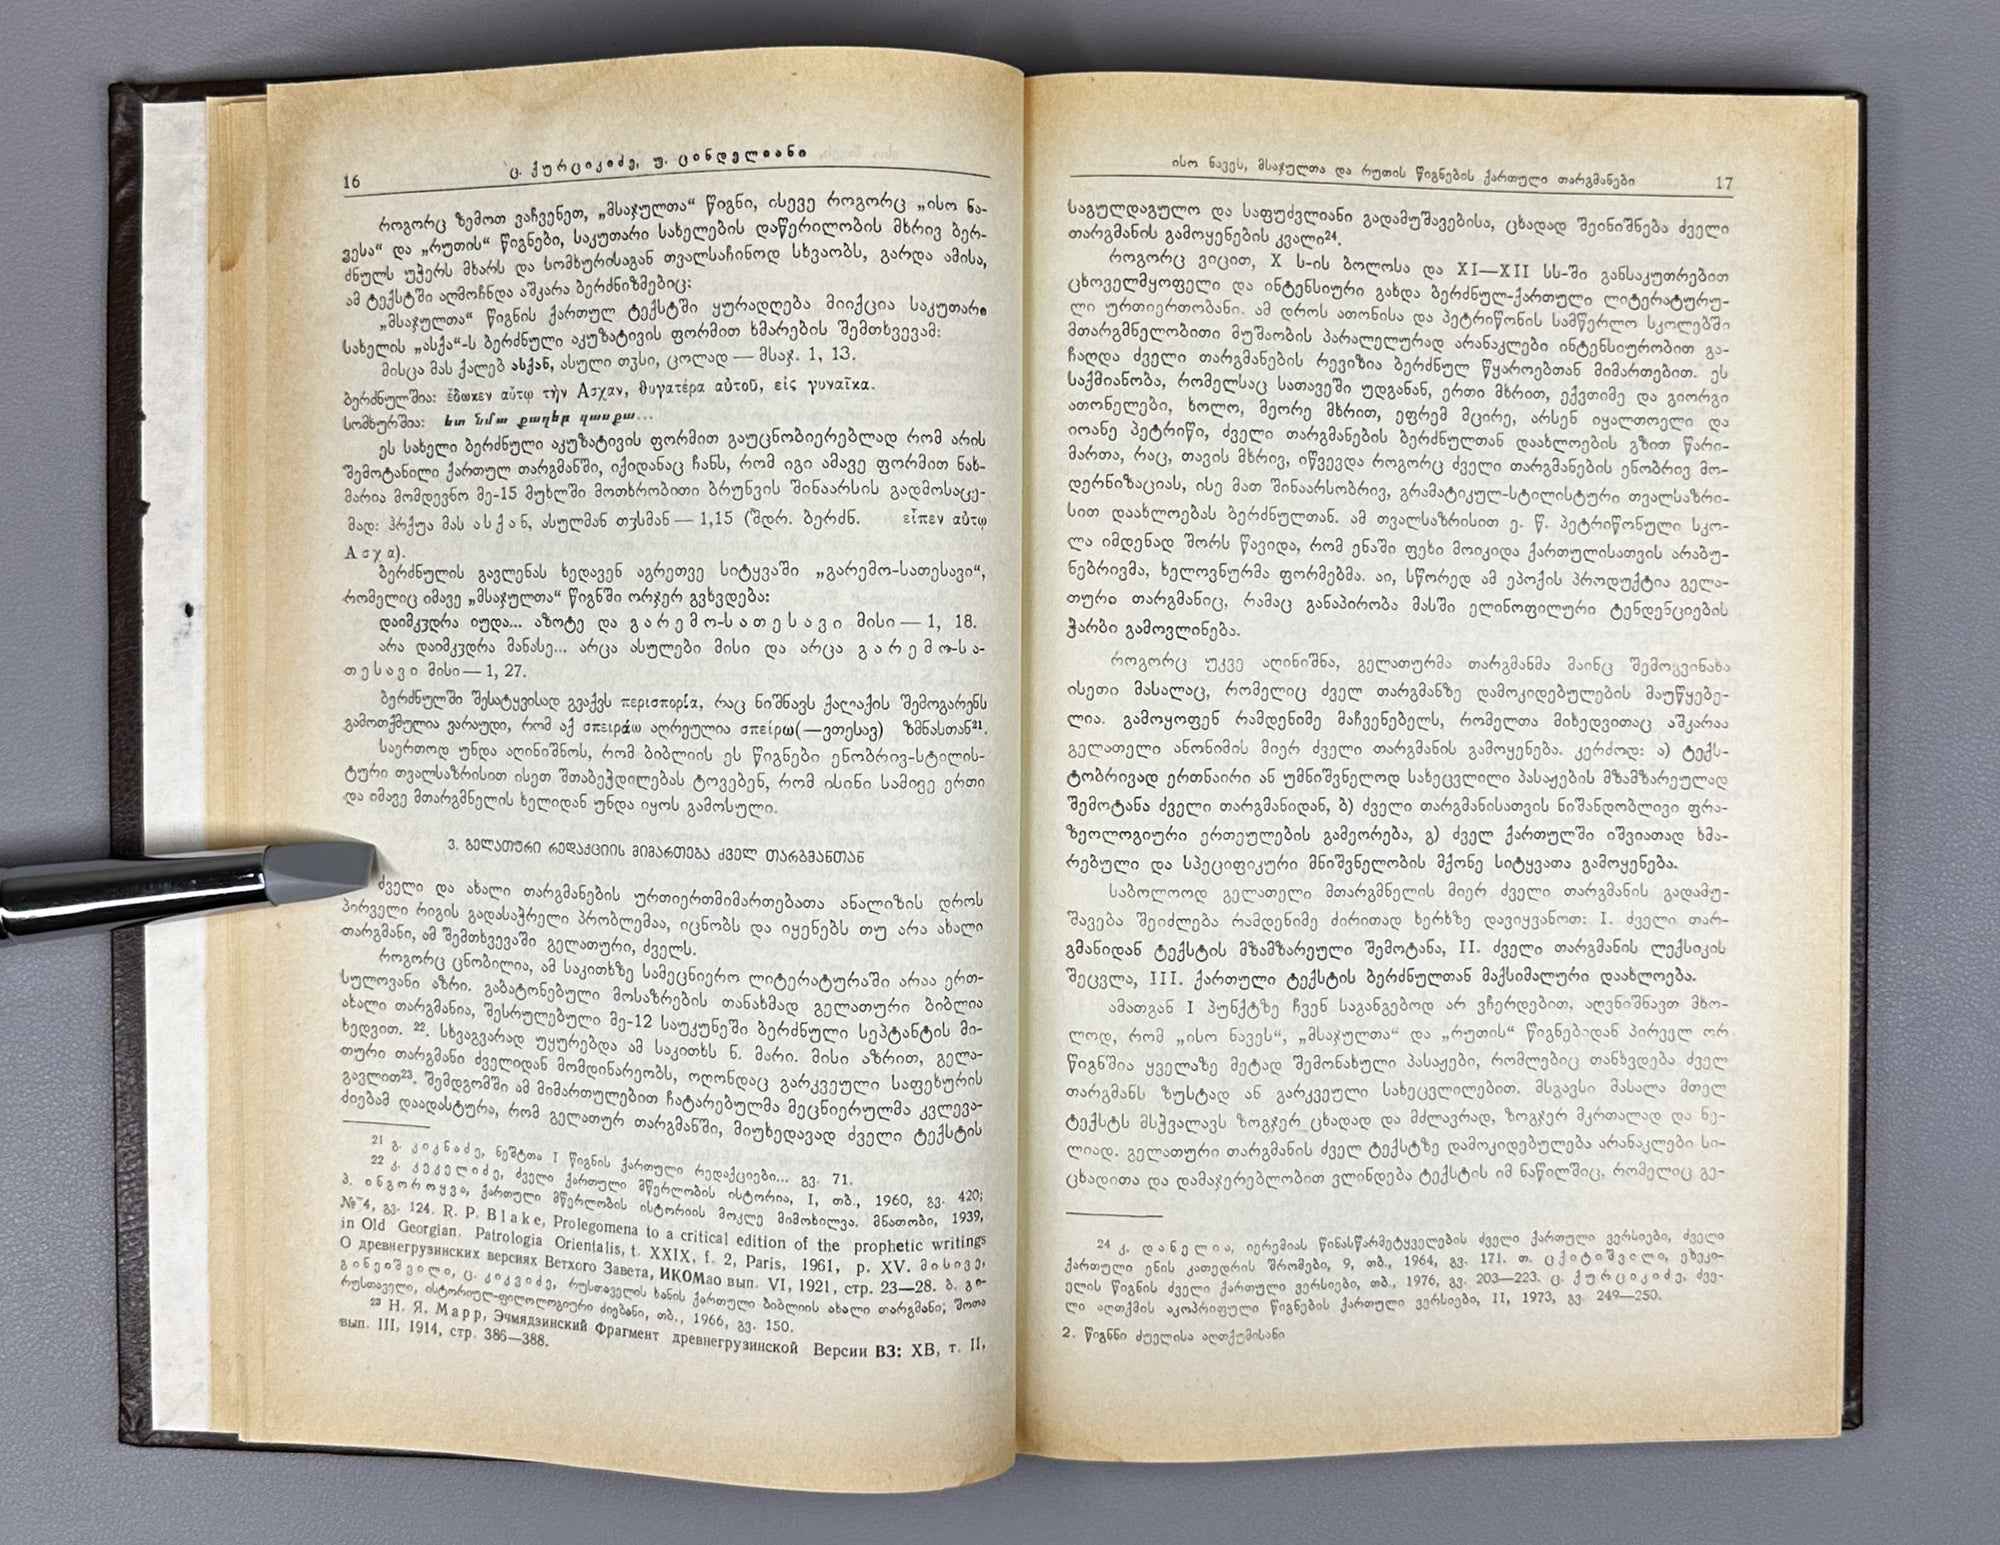 16
ც. ქურციკიძე, უ. ცინდელიანი
როგორც ზემოთ ვაჩვენეთ, „მსაჯულთა“ წიგნი, ისევე როგორც „ისო ნა-
ვესა“ და „რუთის“ წიგნები, საკუთარი სახელების დაწერილობის მხრივ ბერ-
ძნულს უჭერს მხარს და სომხურისაგან თვალსაჩინოდ სხვაობს, გარდა ამისა,
ამ ტექსტში აღმოჩნდა აშკარა ბერძნიზმებიც:
„მსაჯულთა“ წიგნის ქართულ ტექსტში ყურადღება მიიქცია საკუთარი
სახელის „ასქა“-ს ბერძნული აკუზატივის ფორმით ხმარების შემთხვევამ:
მისცა მას ქალებ ასქან, ასული თჳსი, ცოლად — მსაჯ. 1, 13.
ბერძნულშია: ἔδωκεν αὔτῳ τὴν Ασχαν, θυγατέρα αὐτοῦ, εἰς γυναῖκα.
სომხურშია: ետ նմա քաղեբ զասքա...
ეს სახელი ბერძნული აკუზატივის ფორმით გაუცნობიერებლად რომ არის
შემოტანილი ქართულ თარგმანში, იქიდანაც ჩანს, რომ იგი ამავე ფორმით ნახ-
მარია მომდევნო მე-15 მუხლში მოთხრობითი ბრუნვის შინაარსის გადმოსაცე-
მად: ჰრქუა მას ასქან, ასულმან თჳსმან — 1,15 (შდრ. ბერძნ. εἶπεν αὐτῳ
Ασχα).
ბერძნულის გავლენას ხედავენ აგრეთვე სიტყვაში „გარემო-სათესავი“,
რომელიც იმავე „მსაჯულთა“ წიგნში ორჯერ გვხვდება:
დაიმკჳდრა იუდა... აზოტე და გარემო-სათესავი მისი — 1, 18.
არა დაიმკჳდრა მანასე... არცა ასულები მისი და არცა გარემო-სა-
თესავი მისი — 1, 27.
ბერძნულში შესატყვისად გვაქვს περισπορία, რაც ნიშნავს ქალაქის შემოგარენს
გამოთქმულია ვარაუდი, რომ აქ σπειράω აღრეულია σπείρω(—ვთესავ) ზმნასთან²¹.
საერთოდ უნდა აღინიშნოს, რომ ბიბლიის ეს წიგნები ენობრივ-სტილის-
ტური თვალსაზრისით ისეთ შთაბეჭდილებას ტოვებენ, რომ ისინი სამივე ერთი
და იმავე მთარგმნელის ხელიდან უნდა იყოს გამოსული.
3. გელათური რედაქციის მიმართება ძველ თარგმანთან
ძველი და ახალი თარგმანების ურთიერთმიმართებათა ანალიზის დროს
პირველი რიგის გადასაჭრელი პრობლემაა, იცნობს და იყენებს თუ არა ახალი
თარგმანი, ამ შემთხვევაში გელათური, ძველს.
როგორც ცნობილია, ამ საკითხზე სამეცნიერო ლიტერატურაში არაა ერთ-
სულოვანი აზრი. გაბატონებული მოსაზრების თანახმად გელათური ბიბლია
ახალი თარგმანია, შესრულებული მე-12 საუკუნეში ბერძნული სეპტანტის მი-
ხედვით. ²². სხვაგვარად უყურებდა ამ საკითხს ნ. მარი. მისი აზრით, გელა-
თური თარგმანი ძველიდან მომდინარეობს, ოღონდაც გარკვეული საფეხურის
გავლით²³. შემდგომში ამ მიმართულებით ჩატარებულმა მეცნიერულმა კვლევა-
ძიებამ დაადასტურა, რომ გელათურ თარგმანში, მიუხედავად ძველი ტექსტის
²¹ გ. კიკნაძე, ნეშტთა I წიგნის ქართული რედაქციები... გვ. 71.
²² კ. კეკელიძე, ძველი ქართული მწერლობის ისტორია, I, თბ., 1960, გვ. 420;
პ. ინგოროყვა, ქართული მწერლობის ისტორიის მოკლე მიმოხილვა. მნათობი, 1939,
№ 4, გვ. 124. R. P. Blake, Prolegomena to a critical edition of the prophetic writings
in Old Georgian. Patrologia Orientalis, t. XXIX, f. 2, Paris, 1961, p. XV. მისივე,
О древнегрузинских версиях Ветхого Завета, ИКОМао вып. VI, 1921, стр. 23—28. ბ. გი-
გინეიშვილი, ც. კიკვიძე, რუსთაველის ხანის ქართული ბიბლიის ახალი თარგმანი; შოთა
რუსთაველი, ისტორიულ-ფილოლოგიური ძიებანი, თბ., 1966, გვ. 150.
²³ Н. Я. Марр, Эчмядзинский Фрагмент древнегрузинской Версии ВЗ: ХВ, т. II,
вып. III, 1914, стр. 386—388.
ისო ნავეს, მსაჯულთა და რუთის წიგნების ქართული თარგმანები
17
საგულდაგულო და საფუძვლიანი გადამუშავებისა, ცხადად შეინიშნება ძველი
თარგმანის გამოყენების კვალი²⁴.
როგორც ვიცით, X ს-ის ბოლოსა და XI—XII სს-ში განსაკუთრებით
ცხოველმყოფელი და ინტენსიური გახდა ბერძნულ-ქართული ლიტერატურუ-
ლი ურთიერთობანი. ამ დროს ათონისა და პეტრიწონის სამწერლო სკოლებში
მთარგმნელობითი მუშაობის პარალელურად არანაკლები ინტენსიურობით გა-
ჩაღდა ძველი თარგმანების რევიზია ბერძნულ წყაროებთან მიმართებით. ეს
საქმიანობა, რომელსაც სათავეში უდგანან, ერთი მხრით, ექვთიმე და გიორგი
ათონელები, ხოლო, მეორე მხრით, ეფრემ მცირე, არსენ იყალთოელი და
იოანე პეტრიწი, ძველი თარგმანების ბერძნულთან დაახლოების გზით წარი-
მართა, რაც, თავის მხრივ, იწვევდა როგორც ძველი თარგმანების ენობრივ მო-
დერნიზაციას, ისე მათ შინაარსობრივ, გრამატიკულ-სტილისტური თვალსაზრი-
სით დაახლოებას ბერძნულთან. ამ თვალსაზრისით ე. წ. პეტრიწონული სკო-
ლა იმდენად შორს წავიდა, რომ ენაში ფეხი მოიკიდა ქართულისათვის არაბუ-
ნებრივმა, ხელოვნურმა ფორმებმა. აი, სწორედ ამ ეპოქის პროდუქტია გელა-
თური თარგმანიც, რამაც განაპირობა მასში ელინოფილური ტენდენციების
ჭარბი გამოვლინება.
როგორც უკვე აღინიშნა, გელათურმა თარგმანმა მაინც შემოგვინახა
ისეთი მასალაც, რომელიც ძველ თარგმანზე დამოკიდებულების მაუწყებე-
ლია. გამოყოფენ რამდენიმე მაჩვენებელს, რომელთა მიხედვითაც აშკარაა
გელათელი ანონიმის მიერ ძველი თარგმანის გამოყენება. კერძოდ: ა) ტექს-
ტობრივად ერთნაირი ან უმნიშვნელოდ სახეცვლილი პასაჟების მზამზარეულად
შემოტანა ძველი თარგმანიდან, ბ) ძველი თარგმანისათვის ნიშანდობლივი ფრა-
ზეოლოგიური ერთეულების გამეორება, გ) ძველ ქართულში იშვიათად ხმა-
რებული და სპეციფიკური მნიშვნელობის მქონე სიტყვათა გამოყენება.
საბოლოოდ გელათელი მთარგმნელის მიერ ძველი თარგმანის გადამუ-
შავება შეიძლება რამდენიმე ძირითად ხერხზე დავიყვანოთ: I. ძველი თარ-
გმანიდან ტექსტის მზამზარეული შემოტანა, II. ძველი თარგმანის ლექსიკის
შეცვლა, III. ქართული ტექსტის ბერძნულთან მაქსიმალური დაახლოება.
ამათგან I პუნქტზე ჩვენ საგანგებოდ არ ვჩერდებით, აღვნიშნავთ მხო-
ლოდ, რომ „ისო ნავეს“, „მსაჯულთა“ და „რუთის“ წიგნებიდან პირველ ორ
წიგნშია ყველაზე მეტად შემონახული პასაჟები, რომლებიც თანხვდება ძველ
თარგმანს ზუსტად ან გარკვეული სახეცვლილებით. მსგავსი მასალა მთელ
ტექსტს მსჭვალავს ზოგჯერ ცხადად და მძლავრად, ზოგჯერ მკრთალად და ნე-
ლიად. გელათური თარგმანის ძველ ტექსტზე დამოკიდებულება არანაკლები სი-
ცხადითა და დამაჯერებლობით ვლინდება ტექსტის იმ ნაწილშიც, რომელიც გე-
²⁴ კ. დანელია, იერემიას წინასწარმეტყველების ძველი ქართული ვერსიები, ძველი
ქართული ენის კათედრის შრომები, 9, თბ., 1964, გვ. 171. თ. ცქიტიშვილი, ეზეკი-
ელის წიგნის ძველი ქართული ვერსიები, თბ., 1976, გვ. 203—223. ც. ქურციკიძე, ძვე-
ლი აღთქმის აპოკრიფული წიგნების ქართული ვერსიები, II, 1973, გვ. 249—250.
2. წიგნნი ძუელისა აღთქუმისანი